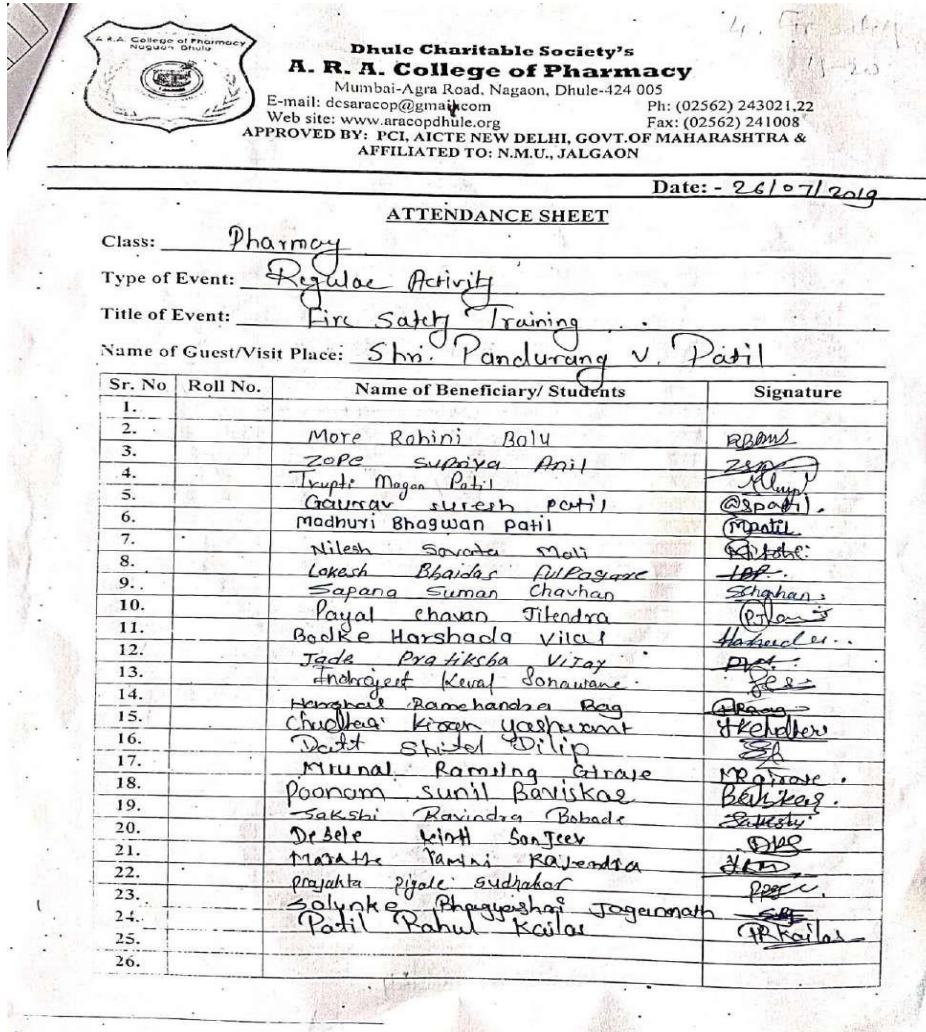 4. Fir safety
A.R.A. College of Pharmacy
Nagaon Dhule
Dhule Charitable Society's
A. R. A. College of Pharmacy
Mumbai-Agra Road, Nagaon, Dhule-424 005
E-mail: dcsaracop@gmail.com Ph: (02562) 243021,22
Web site: www.aracopdhule.org Fax: (02562) 241008
APPROVED BY: PCI, AICTE NEW DELHI, GOVT.OF MAHARASHTRA &
AFFILIATED TO: N.M.U., JALGAON
Date: - 26/07/2019
ATTENDANCE SHEET
Class: Pharmacy
Type of Event: Regulae Activity
Title of Event: Fire Safety Training
Name of Guest/Visit Place: Shri. Pandurang V. Patil
Sr. No Roll No. Name of Beneficiary/ Students Signature
1.
2. More Rohini Balu
3. ZOPE Supriya Anil
4. Trupti Magan Patil
5. Gaurav suresh patil @spatil.
6. Madhuri Bhagwan patil Mpatil
7. Nilesh Savata Mali
8. Lokesh Bhaidas
9. Sapana Suman Chavhan Schavhan
10. Payal chavan Jitendra
11. Bodke Harshada Vilas
12. Jade Pratiksha Vijay
13. Indrajeet Keval Sonawane
14. Ramchandra Bag
15. Chudhai kiran yashwant
16. Datt Shital Dilip
17. Mrunal Ramsing Girase MRgirase.
18. Poonam Sunil Baviskar
19. Sakshi Ravindra Bobade Sakshi
20. Desele kirti Sanjeev
21. Marathe Yamini Rajendra
22. prajakta pigale sudhakar
23. Salunke Bhagyashri Jagannath
24. Patil Rahul Kailas
25. PRKailas
26.